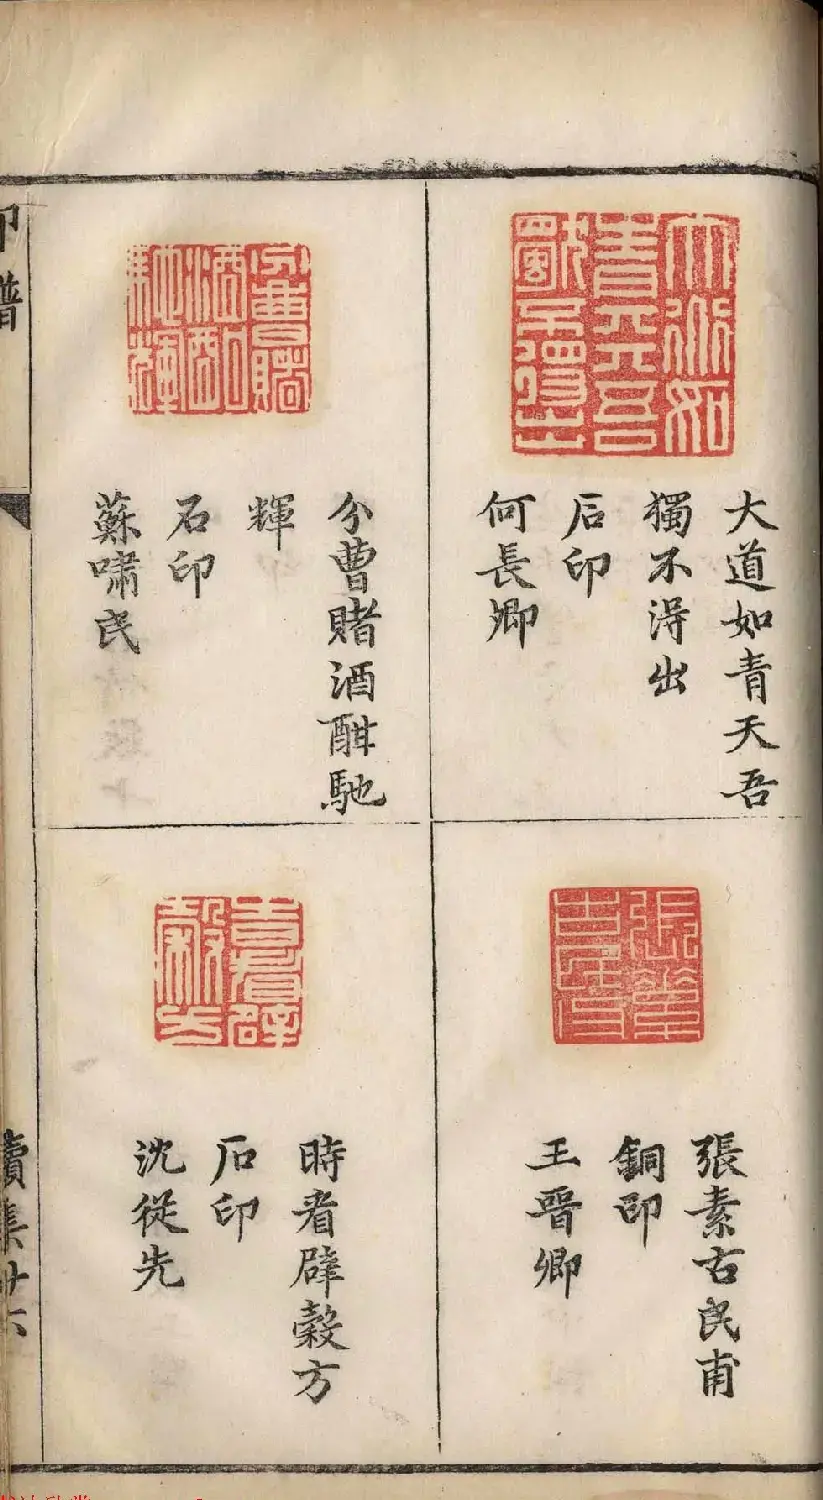 大道如青天吾
獨不淂出
石印
何長卿
分曹賭酒酣馳
輝
石印
蘇嘯民
張素古民甫
銅印
王晉卿
時看辟穀方
石印
沈從先
印譜
續集廿六